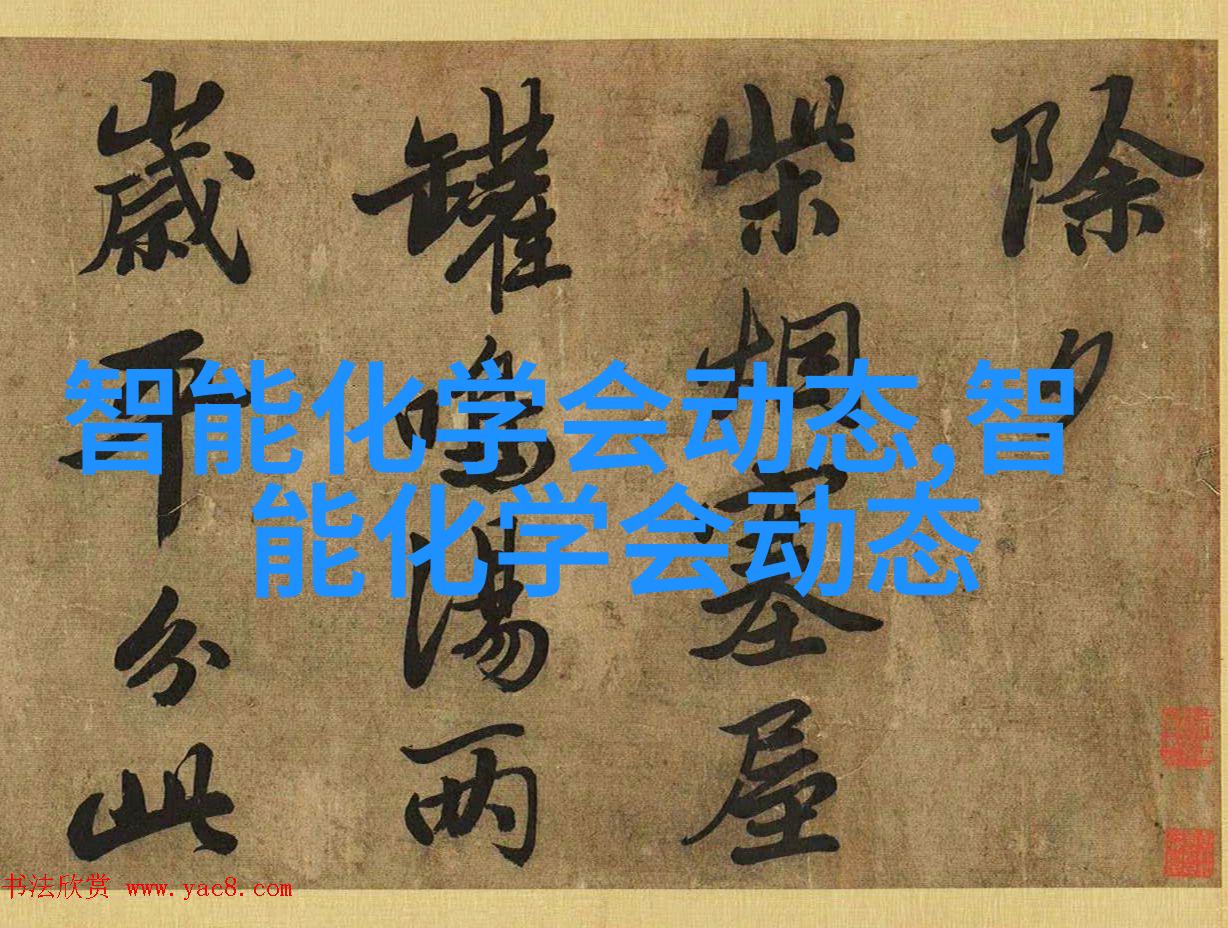 除夕
柴烟塞屋
罐鳴湯兩
歲平分此
智能化学会动态,智
能化学会动态
书法欣赏 www.yac8.com